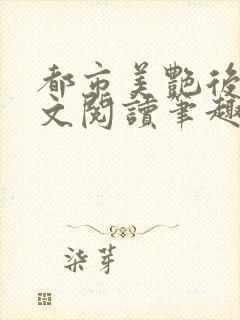 都市美艷後
文閱讀筆趣
柒芽